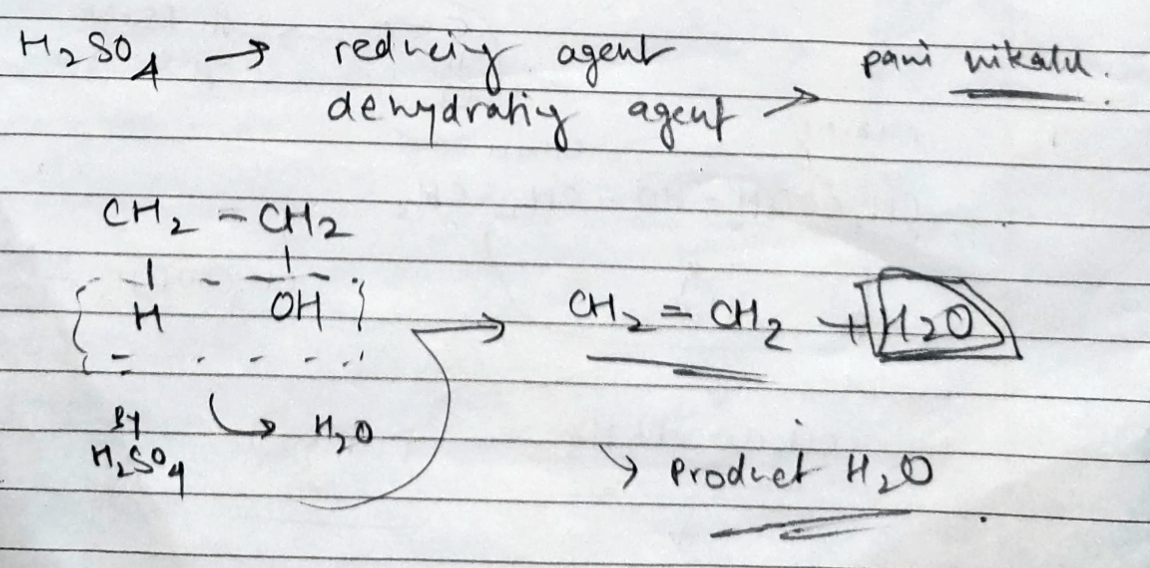 H₂SO₄ → reducing agent
dehydrating agent > pani nikalu.
CH₂ - CH₂
H OH
CH₂ = CH₂ + H2O
By → H₂O
H₂SO₄
→ Product H₂O